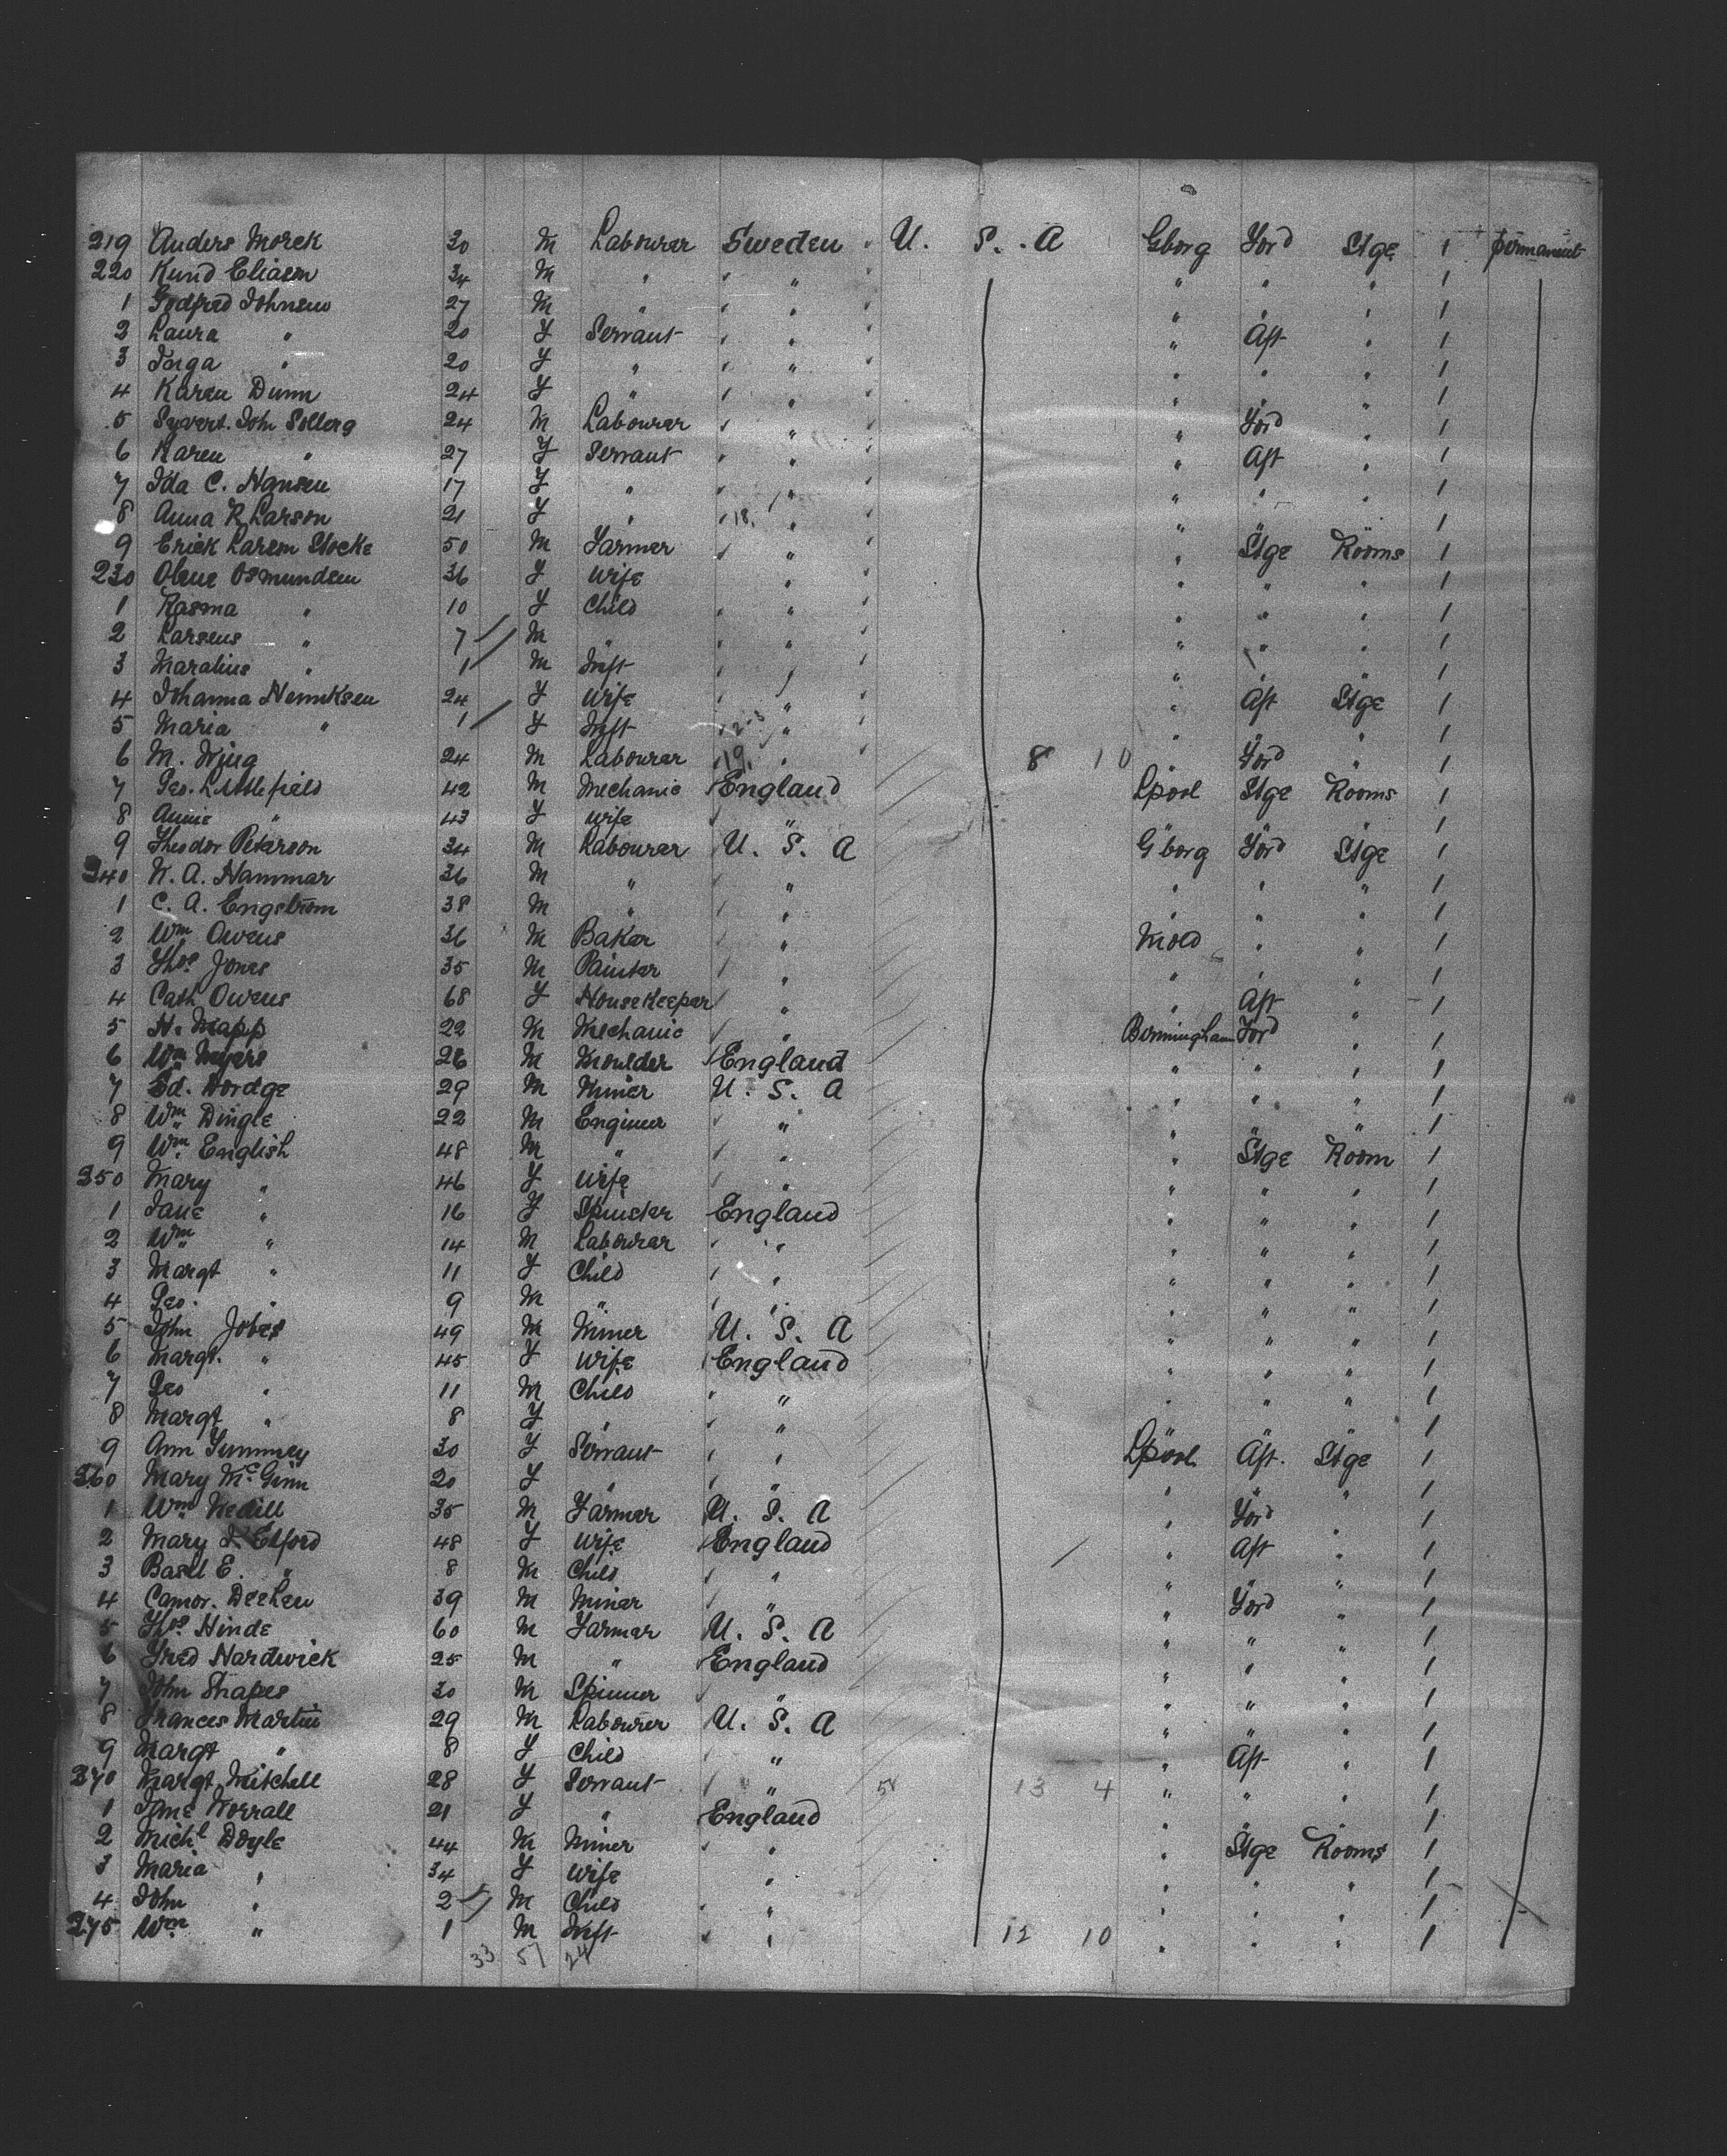 219 Anders Morck 30 M Labourer Sweden U. S. A Gborg Ford Stge 1 permanent
220 Kund Eliasen 34 M " " " " " 1
1 Godfred Johnsen 27 M " " " " " 1
2 Laura " 20 F Servant " " Aft " 1
3 Torga " 20 F " " " " " 1
4 Karen Dunn 24 F " " " " " 1
5 Syvert. John Solberg 24 M Labourer " " Ford " 1
6 Karen " 27 F Servant " " Aft " 1
7 Ida C. Hansen 17 F " " " " " 1
8 Anna R Larson 21 F " 18, " " " " 1
9 Erick Larsen Stocke 50 M Farmer " " Stge Rooms 1
230 Olene Osmundsen 36 F Wife " " " " 1
1 Rasma " 10 F Child " " " " 1
2 Larseus " 7 M " " " " " 1
3 Maralius " 1 M Inft " " " " 1
4 Johanna Henriksen 24 F Wife " " Aft Stge 1
5 Maria " 1 F Inft " " " " 1
6 M. Wing 24 M Labourer 19, " 8 10 " Ford " 1
7 Geo. Littlefield 42 M Mechanic England Lpool Stge Rooms 1
8 Annie " 43 F Wife " " " " 1
9 Theodor Peterson 34 M Labourer U. S. A Gborg Ford Stge 1
240 N. A. Hammar 36 M " " " " " 1
1 C. A. Engstrom 38 M " " " " " 1
2 Wm Owens 36 M Baker " Mold " " 1
3 Thos Jones 35 M Painter " " " " 1
4 Cath Owens 68 F Housekeeper " " Aft " 1
5 H. Mapp 22 M Mechanic " Birmingham Ford " 1
6 Wm Myers 26 M Moulder England " " " 1
7 Ed. Dordge 29 M Miner U. S. A " " " 1
8 Wm Dingle 22 M Engineer " " " " 1
9 Wm English 48 M " " " Stge Room 1
250 Mary " 46 F Wife " " " " 1
1 Jane " 16 F Spinster England " " " 1
2 Wm " 14 M Labourer " " " " 1
3 Margt " 11 F Child " " " " 1
4 Geo. " 9 M " " " " " 1
5 John Jobes 49 M Miner U. S. A " " " 1
6 Margt. " 45 F Wife England " " " 1
7 Geo " 11 M Child " " " " 1
8 Margt " 8 F " " " " " 1
9 Ann Tummey 30 F Servant " Lpool Aft. Stge 1
260 Mary McGinn 20 F " " " " " 1
1 Wm Nedill 35 M Farmer U. S. A " Ford " 1
2 Mary J. Elford 48 F Wife England " Aft " 1
3 Basil E. " 8 M Child " " " " 1
4 Camor. Deehen 39 M Miner " " Ford " 1
5 Thos Hinde 60 M Farmer U. S. A " " " 1
6 Fred Hardwick 25 M " England " " " 1
7 John Snapes 30 M Spinner " " " " 1
8 Frances Martin 29 M Labourer U. S. A " " " 1
9 Margt " 8 F Child " " Aft " 1
270 Margt Mitchell 28 F Servant " 58 13 4 " " " 1
1 Jane Worrall 21 F " England " " " 1
2 Michl Doyle 44 M Miner " " Stge Rooms 1
3 Maria " 34 F Wife " " " " 1
4 John " 2 M Child " " " " 1
275 Wm " 1 M Inft " 12 10 " " " 1
33 57 24